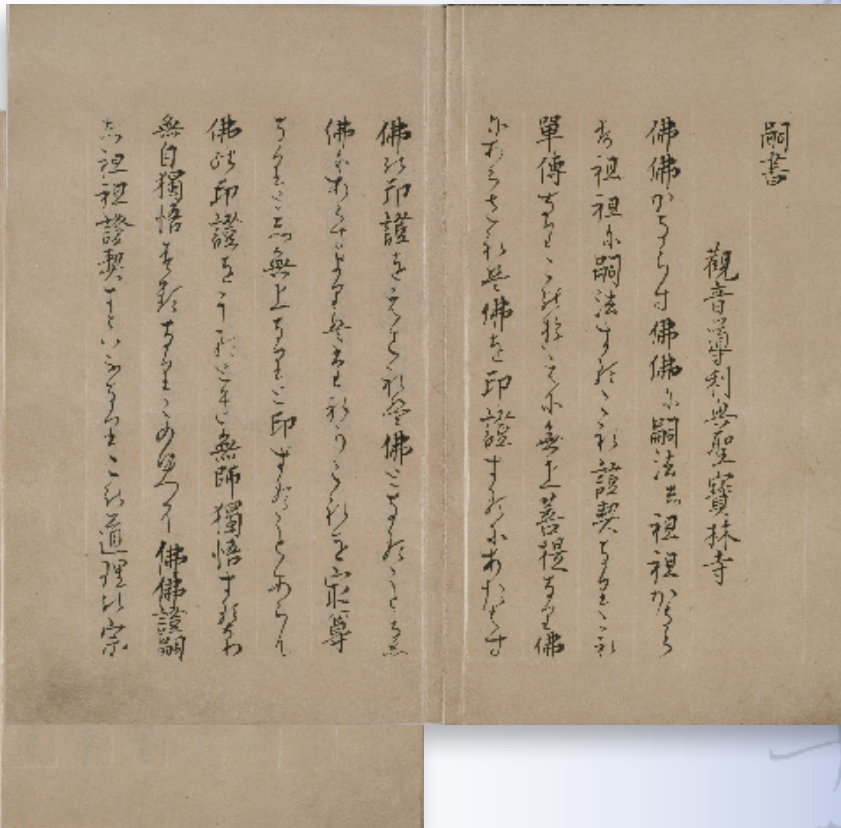 嗣書
觀音導利興聖寶林寺
佛佛かならす佛佛に嗣法し祖祖かなら
す祖祖に嗣法するこれ證契なりこれ
單傳なりこのゆゑに無上菩提なり佛
にあらされは佛を印證するにあたはす
佛の印證をえされは佛となることなし
佛にあらすよりはたれかこれを最尊
なりとし無上なりと印することあらん
佛の印證をうるとき無師獨悟するなり
無自獨悟するなりこのゆへに佛佛證嗣
し祖祖證契すといふなりこの道理の宗